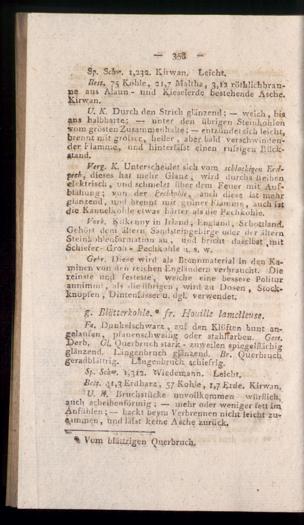 — 358 —
Sp. Schw. 1,232. Kirwan. Leicht.
Best. 75 Kohle, 21,7 Maltha, 3,12 röthlichbrau-
ne aus Alaun- und Kieselerde bestehende Asche.
Kirwan.
U. K. Durch den Strich glänzend; — weich, bis
ans halbharte; — unter den übrigen Steinkohlen
vom grösten Zusammenhalte; — entzündet sich leicht,
brennt mit grosser, heller, aber bald verschwinden-
der Flamme, und hinterläßt einen rußigen Rück-
stand.
Verg. K. Unterscheidet sich vom schlackigen Erd-
pech, dieses hat mehr Glanz, wird durchs Reiben
elektrisch, und schmelzt über dem Feuer mit Auf-
blähung; von der Pechkohle, auch diese ist mehr
glänzend, und brennt mit grüner Flamme, auch ist
die Kannelkohle etwas härter als die Pechkohle.
Vork. Kilkenny in Irland, England, Schottland.
Gehört dem ältern Sandsteingebirge oder der ältern
Steinkohlenformation an, und bricht daselbst mit
Schiefer- Grob- Pechkohle u. s. w.
Gebr. Diese wird als Brennmaterial in den Ka-
minen von den reichen Engländern verbraucht. Die
reinste und festeste, welche eine bessere Politur
annimmt, als die übrigen, wird zu Dosen, Stock-
knöpfen, Dintenfässer u. dgl. verwendet.
g. Blätterkohle. * fr. Houille lamelleuse.
Fa. Dunkelschwarz, auf den Klüften bunt an-
gelaufen, pfauenschweifig oder stahlfarben. Gest.
Derb. Gl. Querbruch stark- zuweilen spiegelflächig
glänzend, Längenbruch glänzend. Br. Querbruch
geradblättrig, Längenbruch schiefrig.
Sp. Schw. 1,312. Wiedemann. Leicht.
Best. 41,3 Erdharz, 57 Kohle, 1,7 Erde. Kirwan.
U. K. Bruchstücke unvollkommen würflich,
auch scheibenförmig; — mehr oder weniger fett im
Anfühlen; — backt beym Verbrennen nicht leicht zu-
sammen, und läßt keine Asche zurück.
* Vom blättrigen Querbruch.